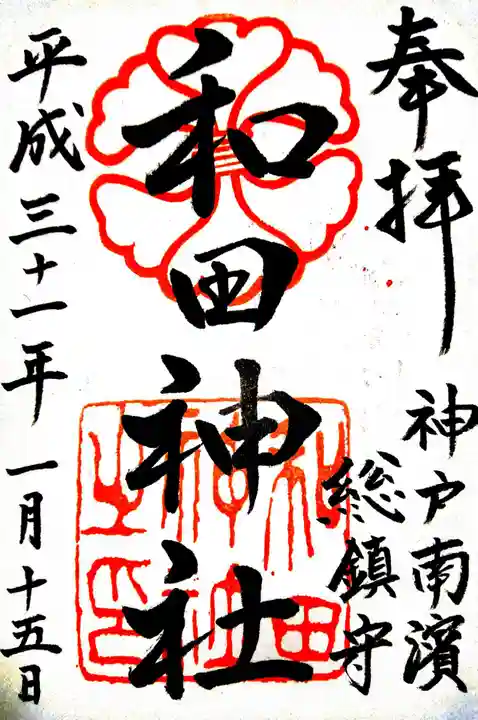 奉拝
神戸南濱
総鎮守
和田神社
和田
神社
之印
平成三十一年一月十五日